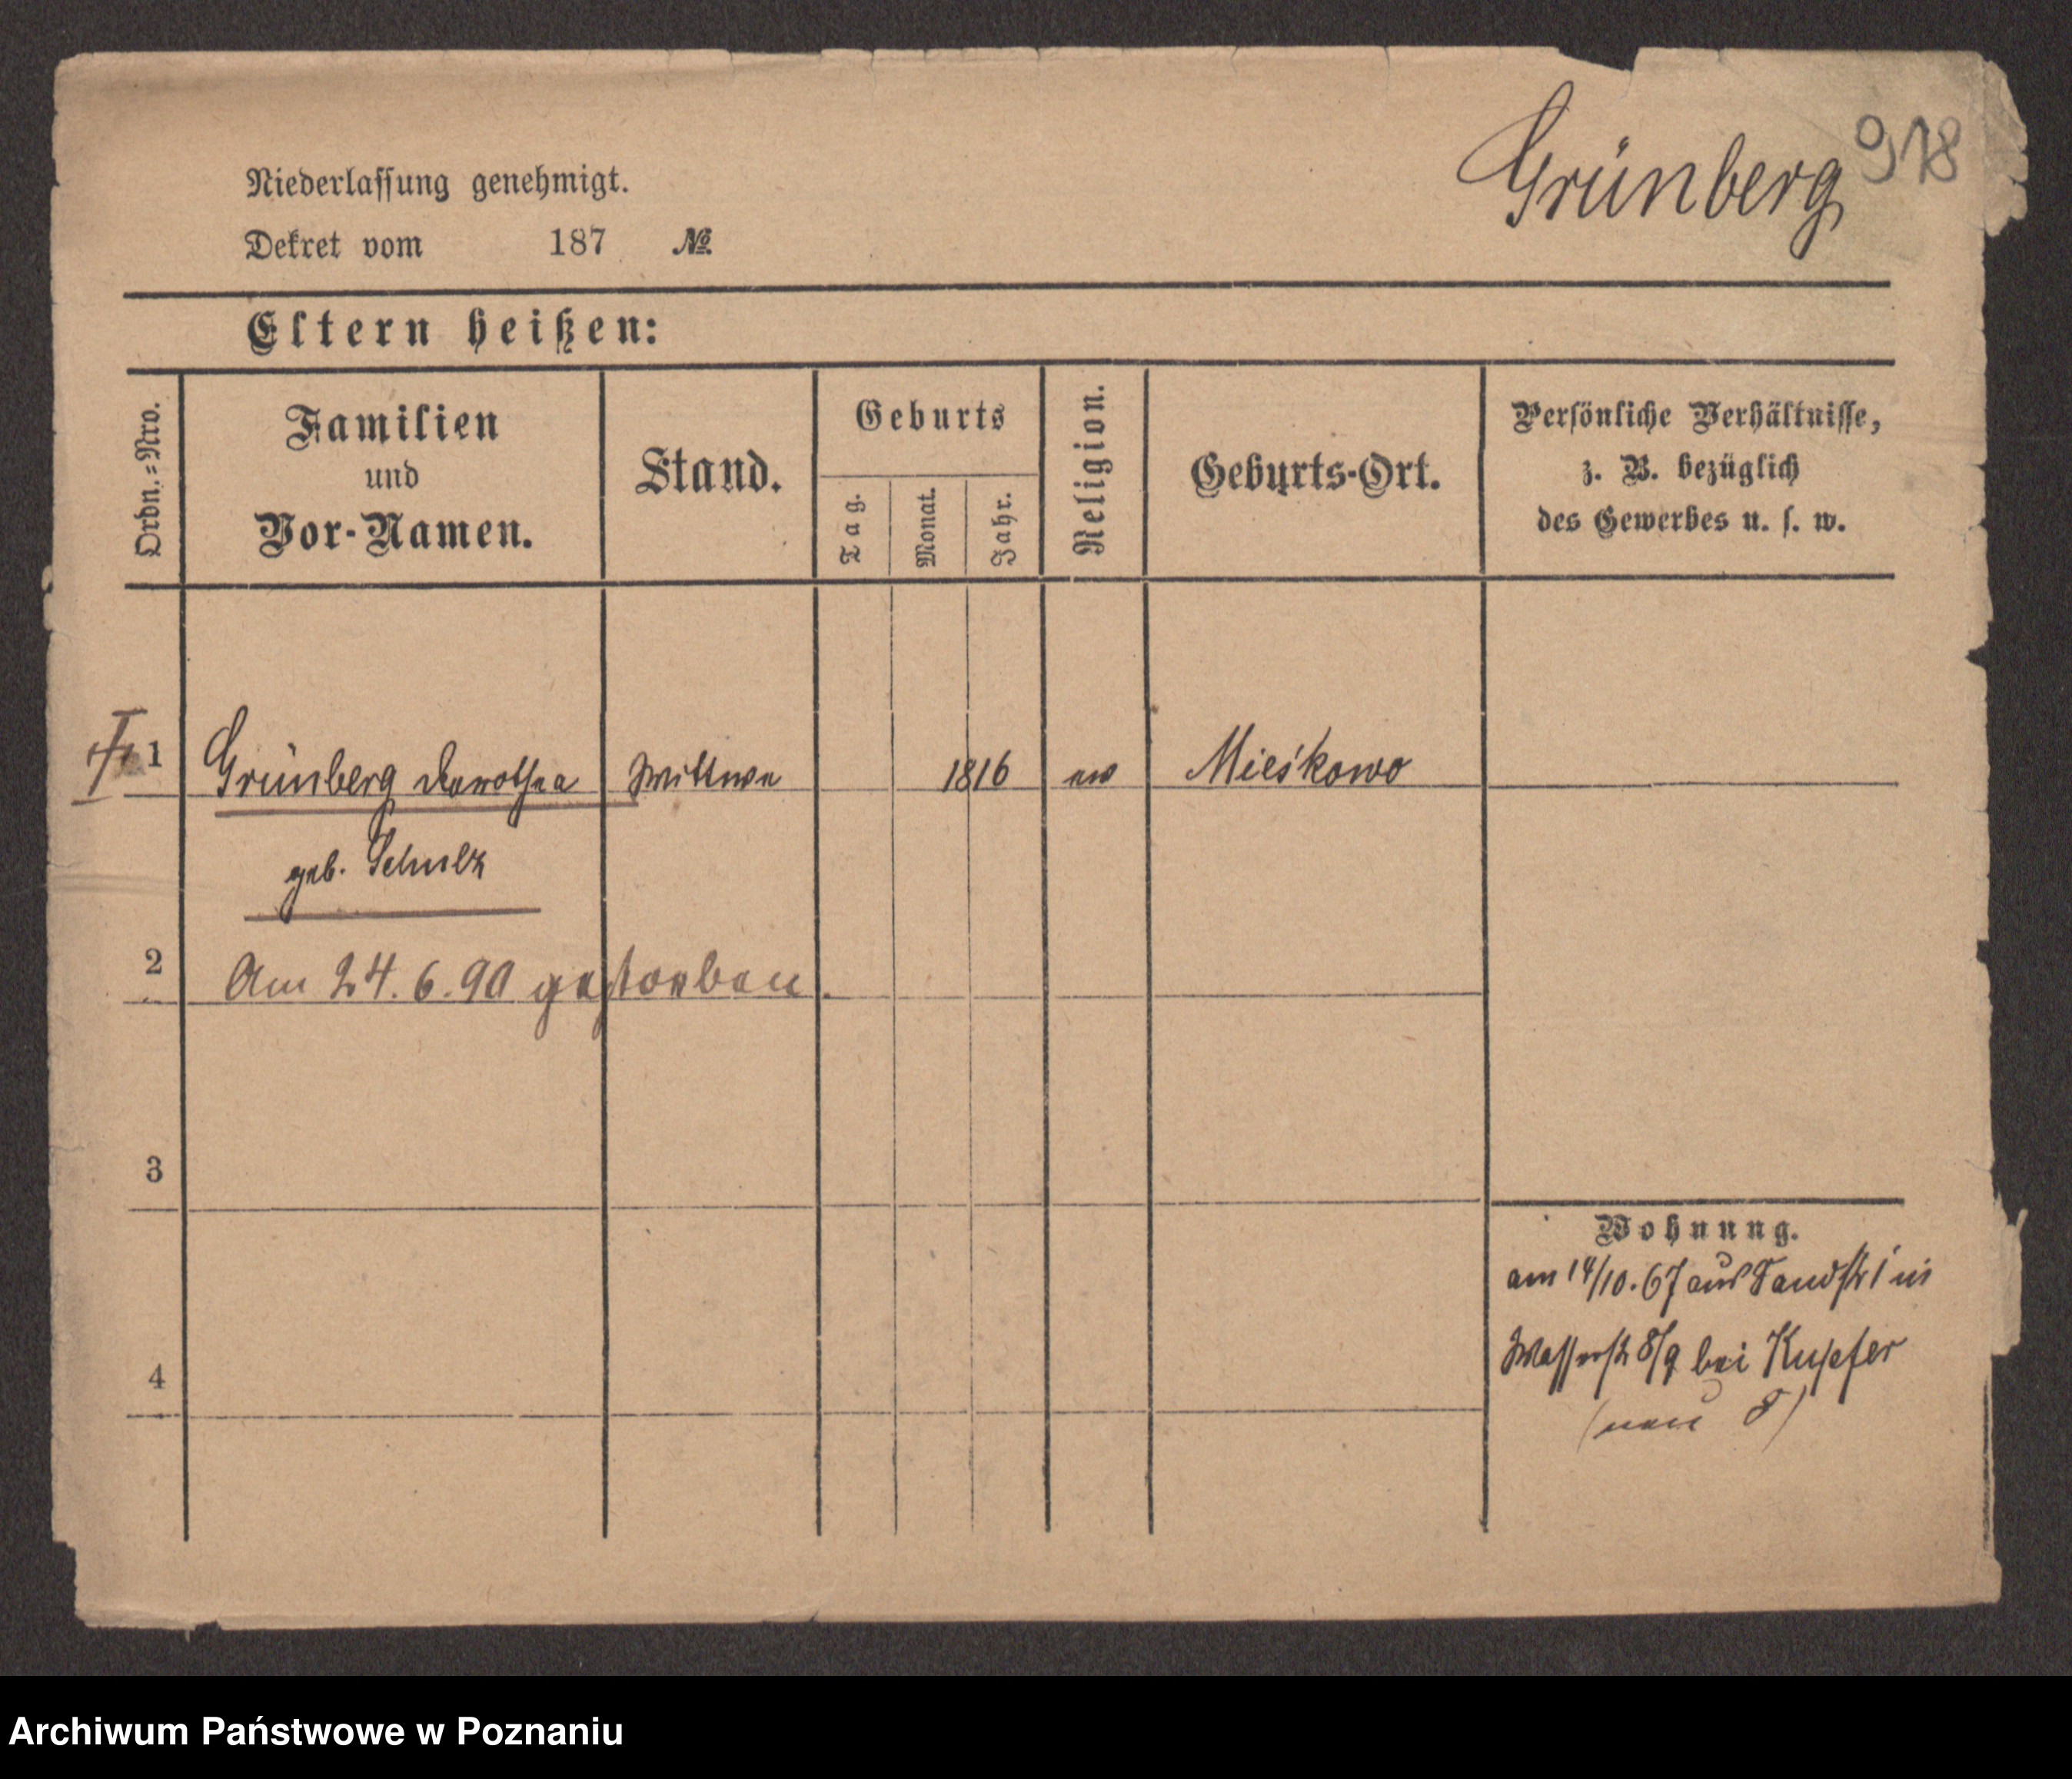 Grünberg 918
Niederlassung genehmigt.
Dekret vom 187 No.
Eltern heißen:
Ordn.=Nro.
Familien
und
Vor-Namen.
Stand.
Geburts
Tag.
Monat.
Jahr.
Religion.
Geburts-Ort.
Persönliche Verhältnisse,
z. B. bezüglich
des Gewerbes u. s. w.
1 Grünberg Dorothea Wittwe 1816 ev Mieśkowo
geb. Schulz
2 Am 24.6.90 gestorben.
3
Wohnung.
am 14/10. 67 aus Sandstr 1 in
Wasserstr 8/9 bei Kupfer
4
(neu 8)
Archiwum Państwowe w Poznaniu